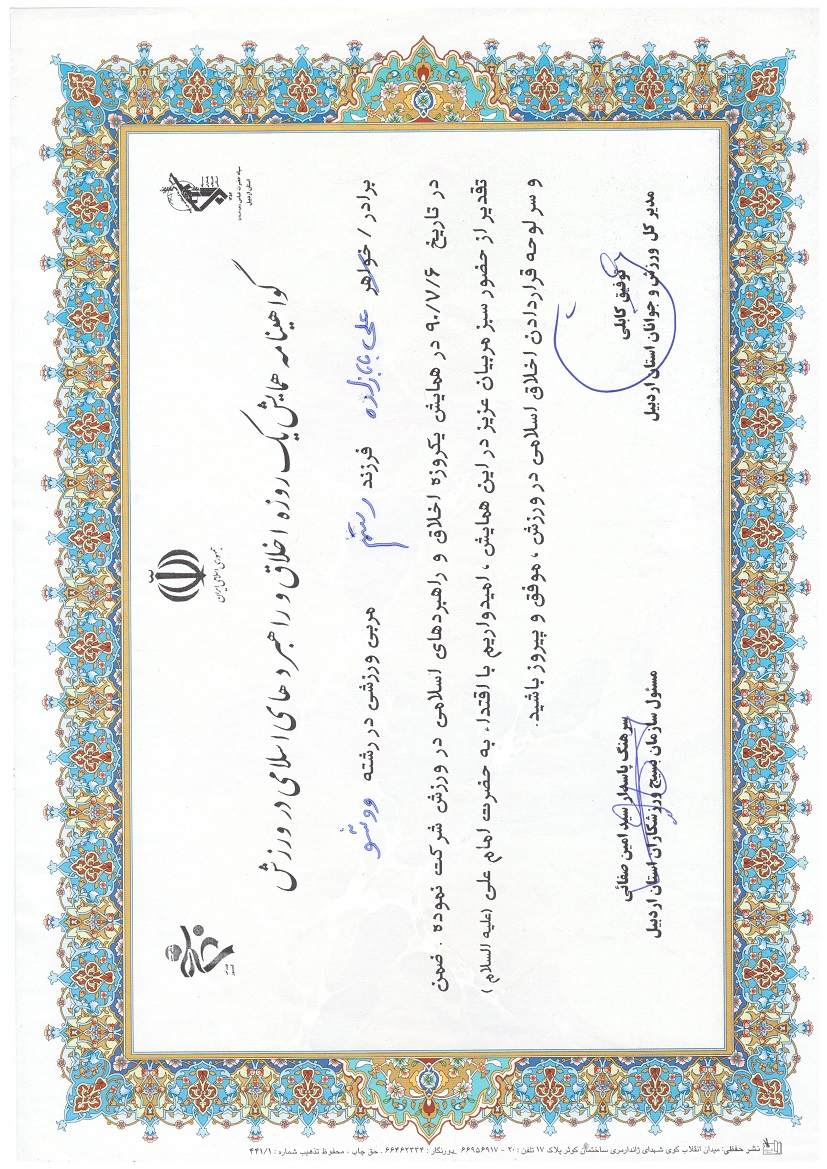 جمهوری اسلامی ایران
سپاه حضرت عباس (علیه السلام)
استان اردبیل
گواهینامه همایش یک روزه اخلاق و راهبردهای اسلامی در ورزش
برادر / خواهر علی بابازاده فرزند رستم مربی ورزشی در رشته ووشو
در تاریخ ۹۰/۷/۶ در همایش یکروزه اخلاق و راهبردهای اسلامی در ورزش شرکت نموده . ضمن
تقدیر از حضور سبز مربیان عزیز در این همایش ، امیدواریم با اقتداء به حضرت امام علی (علیه السلام )
و سر لوحه قراردادن اخلاق اسلامی در ورزش ، موفق و پیروز باشید.
توفیق کابلی
مدیر کل ورزش و جوانان استان اردبیل
سرهنگ پاسدار سید امین صفائی
مسئول سازمان بسیج ورزشکاران استان اردبیل
نشر حفظی: میدان انقلاب کوی شهدای ژاندارمری ساختمان کوثر پلاک ۱۷ تلفن : ۲۰ - ۶۶۹۵۶۹۱۷ ـ دورنگار : ۶۶۴۶۲۳۳۴ . حق چاپ . محفوظ تذهیب شماره : ۴۴۱/۱